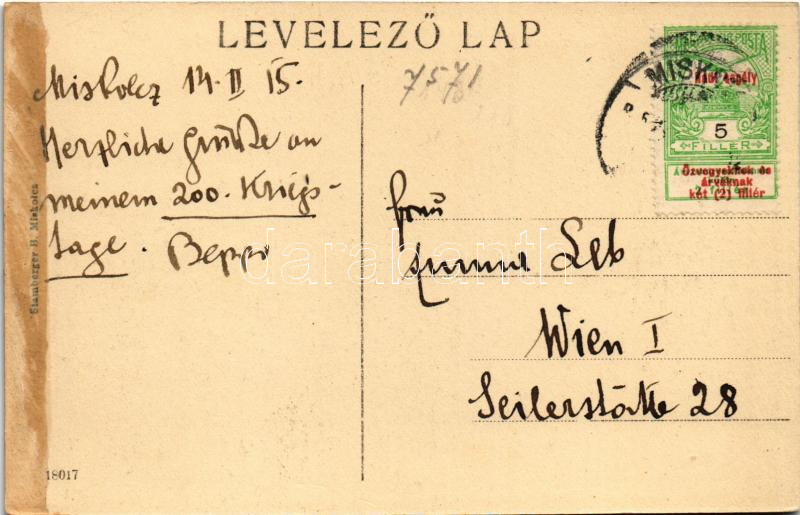 LEVELEZŐ LAP
7571
Miskolcz 14. II 15.
Herzliche Grüße an
meinem 200. Kriegs-
tage. Beppo
MISK
POSTA
Hadi segély
5
FILLÉR
Özvegyeknek és
árváknak
két (2) fillér
Frau
Leb
Wien I
Seilerstätte 28
darabanth
Stamberger B. Miskolcz
18017